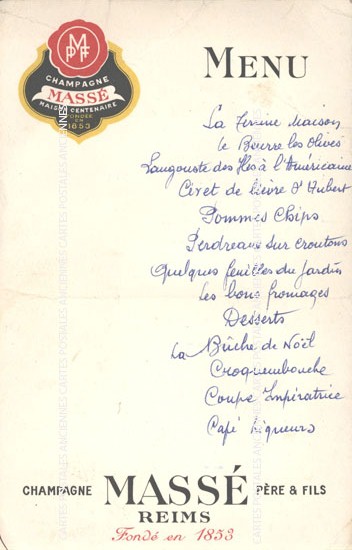 MPF
CHAMPAGNE
MASSÉ
MAISON CENTENAIRE
FONDÉE
EN
1853
MENU
La Terrine Maison
le Beurre les Olives
Langouste des Iles à l'Américaine
Civet de lièvre St Hubert
Pommes Chips
Perdreaux sur croutons
Quelques feuilles du Jardin
Les bons fromages
Desserts
La Bûche de Noël
Croquembouche
Coupe Impératrice
Café Liqueurs
CHAMPAGNE MASSÉ PÈRE & FILS
REIMS
Fondé en 1853
CARTES POSTALES ANCIENNES